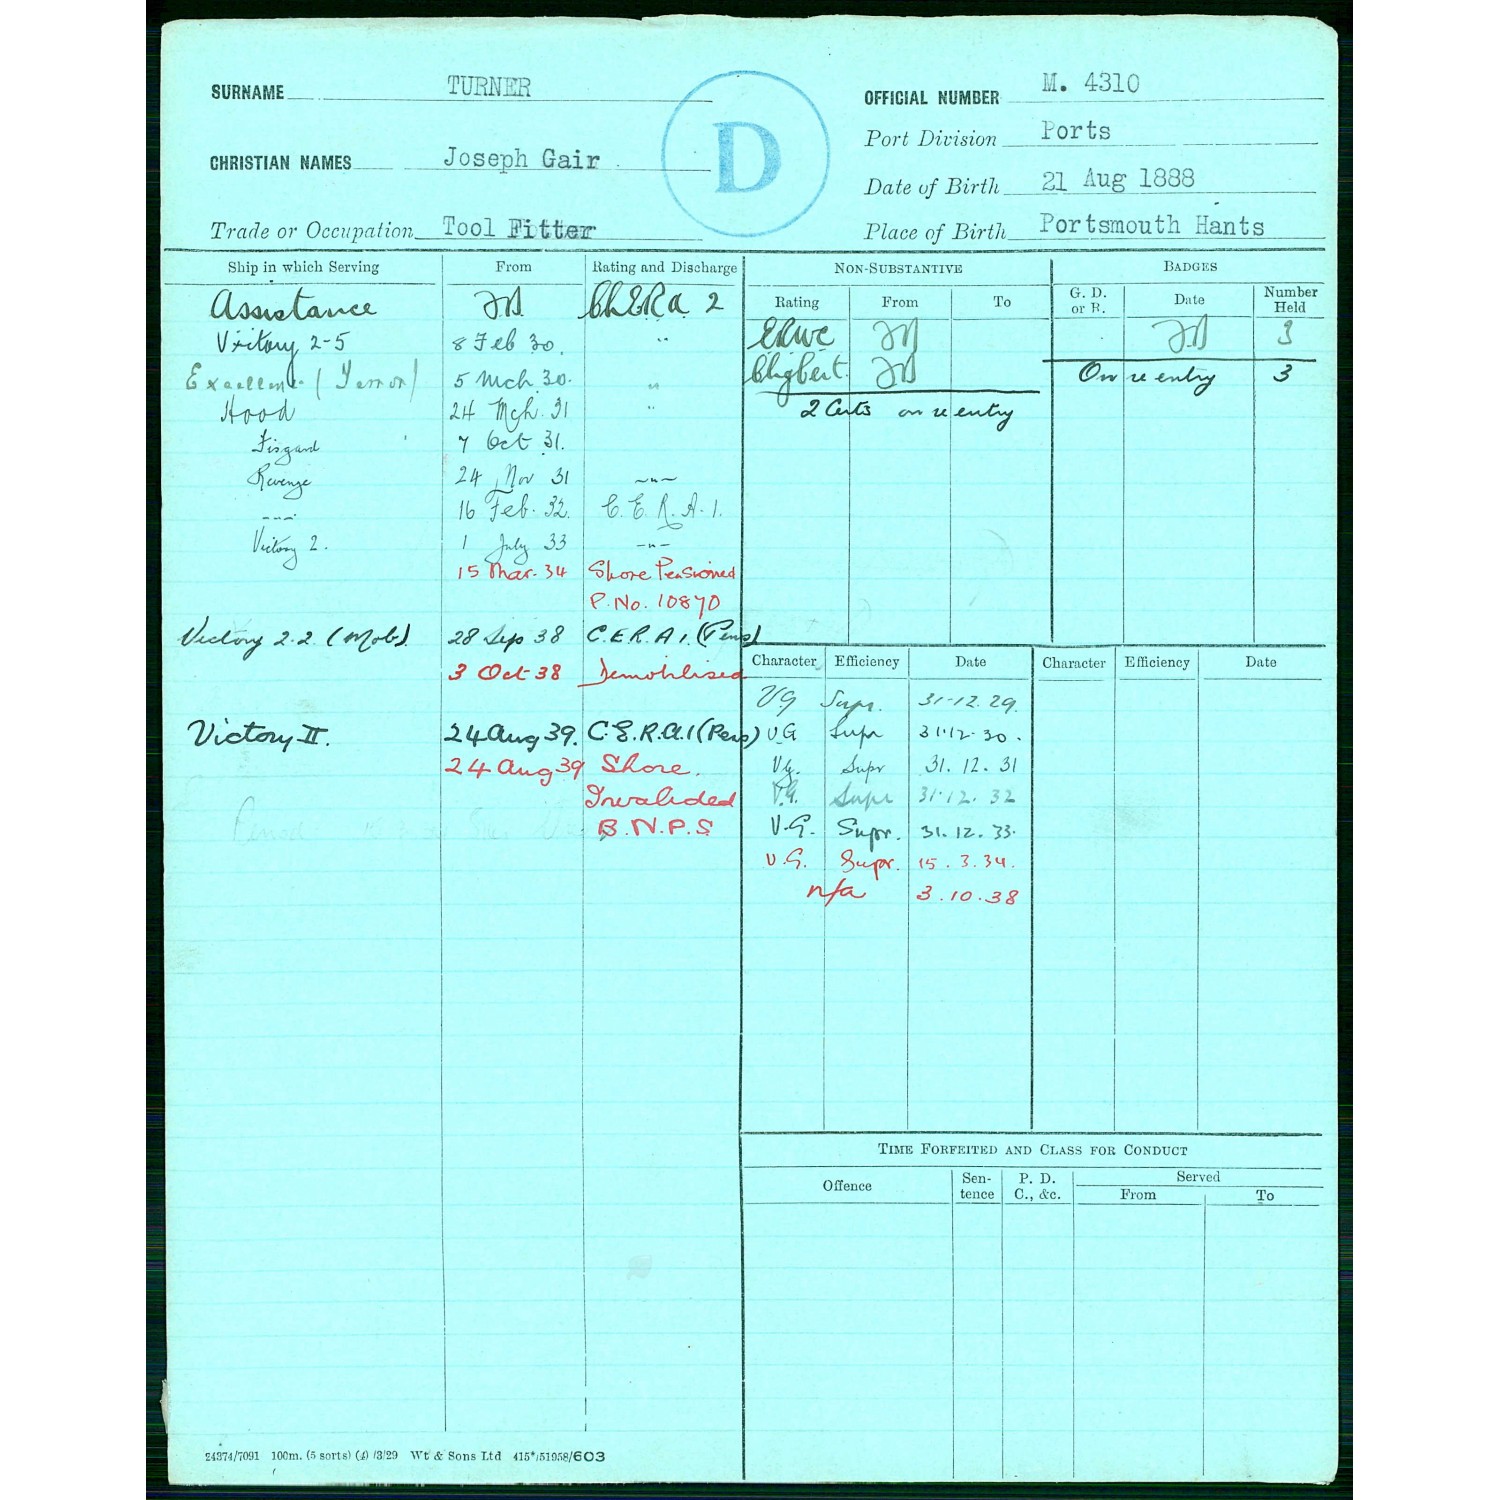 SURNAME TURNER
CHRISTIAN NAMES Joseph Gair
Trade or Occupation Tool Fitter
D
OFFICIAL NUMBER M. 4310
Port Division Ports
Date of Birth 21 Aug 1888
Place of Birth Portsmouth Hants
Ship in which Serving From Rating and Discharge
Assistance
Victory 2-5 8 Feb 30. "
Excellent (Terror) 5 Mch 30. "
Hood 24 Mch. 31 "
Fisgard 7 Oct 31.
Revenge 24 Nov 31 -"-
-"- 16 Feb. 32. C.E.R.A.1.
Victory 2. 1 July 33 -"-
15 Mar. 34 Shore Pensioned
P. No. 10870
Victory 2.2 (Mob). 28 Sep 38 C.E.R.A 1. (Pens)
3 Oct 38 Demobilised
Victory II. 24 Aug 39. C.E.R.A.1 (Pens)
24 Aug 39 Shore.
Invalided
B.N.P.S
NON-SUBSTANTIVE
Rating From To
2 Certs on re entry
BADGES
G. D. or R. Date Number Held
3
On re entry 3
Character Efficiency Date Character Efficiency Date
V.G Supr. 31.12.29.
V.G Supr 31.12.30.
V.G. Supr 31.12.31
V.G. Supr 31.12.32
V.G. Supr. 31.12.33.
V.G. Supr. 15.3.34.
n/a 3.10.38
TIME FORFEITED AND CLASS FOR CONDUCT
Offence Sen-tence P. D. C., &c. Served
From To
24374/7091 100m. (5 sorts) (4) /3/29 Wt & Sons Ltd 415*/51958/603